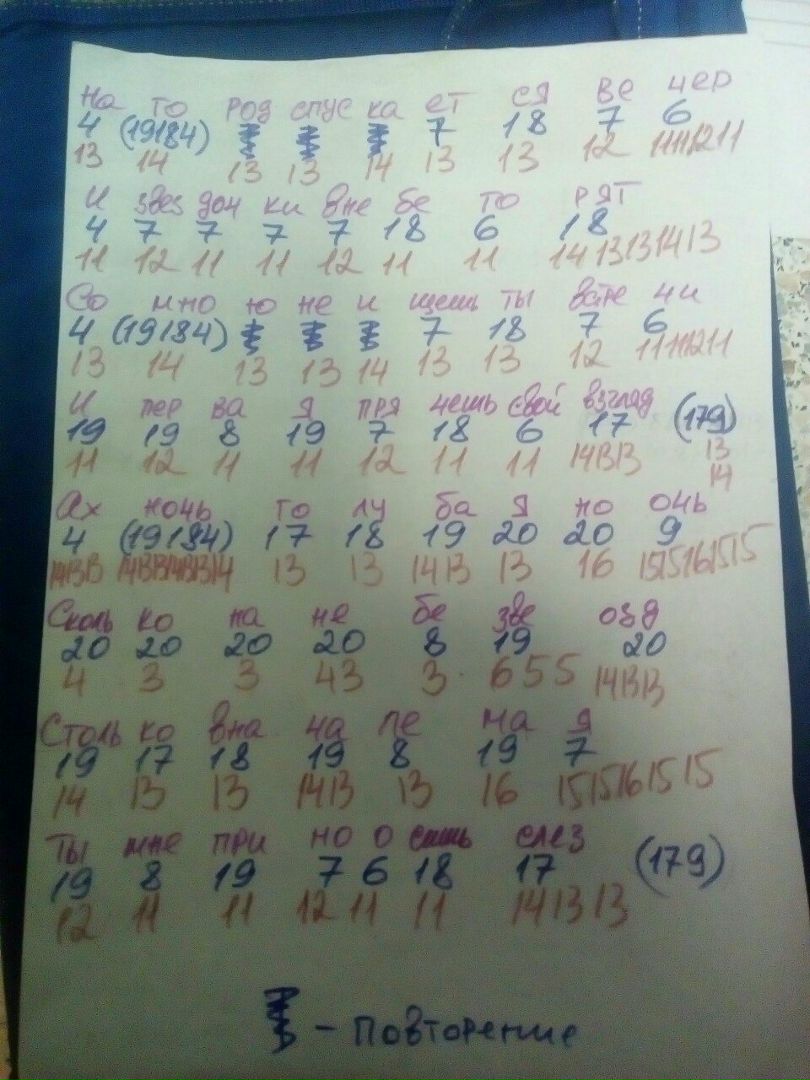 на го род спус ка ет ся ве чер
4 (19184) 7 18 7 6
13 14 13 13 14 13 13 12 11111211
и звез доч ки вне бе го рят
4 7 7 7 7 18 6 18
11 12 11 11 12 11 11 1413131413
Со мно ю не и щешь ты встре чи
4 (19184) 7 18 7 6
13 14 13 13 14 13 13 12 11111211
и пер ва я пря чешь свой взгляд
19 19 8 19 7 18 6 17 (179)
11 12 11 11 12 11 11 141313 13
14
Ах ночь го лу ба я но очь
4 (19184) 17 18 19 20 20 9
141313 14131314131314 13 13 1413 13 16 1515161515
Сколь ко на не бе зве озд
20 20 20 20 8 19 20
4 3 3 43 3 655 141313
Столь ко вна ча ле ма я
19 17 18 19 8 19 7
14 13 13 1413 13 16 1515161515
Ты мне при но о сишь слез
19 8 19 7 6 18 17 (179)
12 11 11 12 11 11 141313
- Повторение